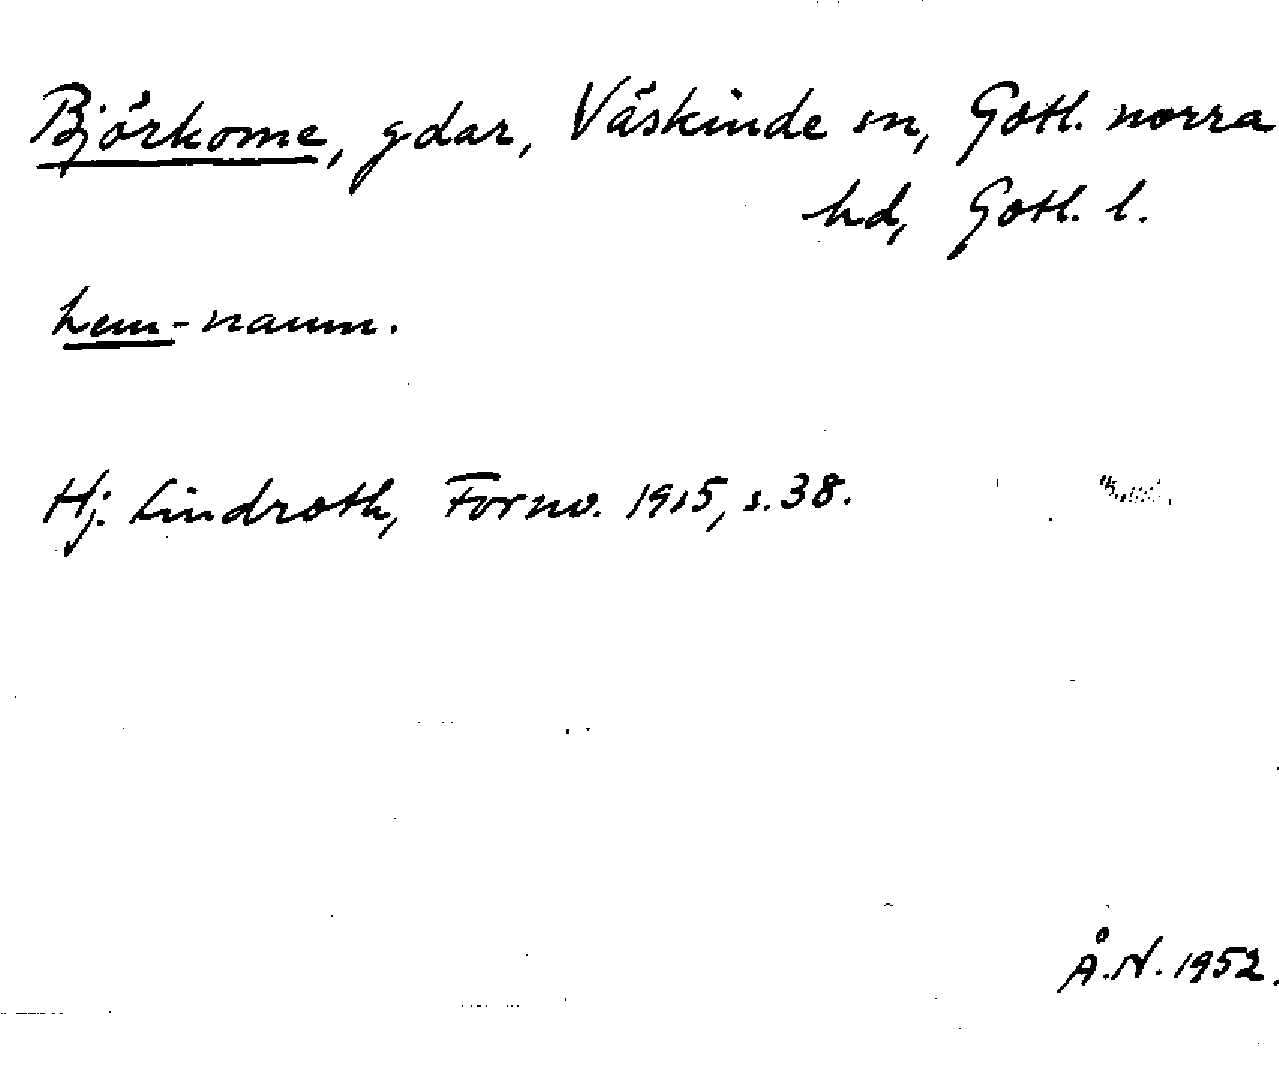 Björkome, gdar, Väskinde sn, Gotl. norra
hd, Gotl. l.
hem-namn.
Hj. Lindroth, Fornv. 1915, s. 38.
Å.N. 1952.